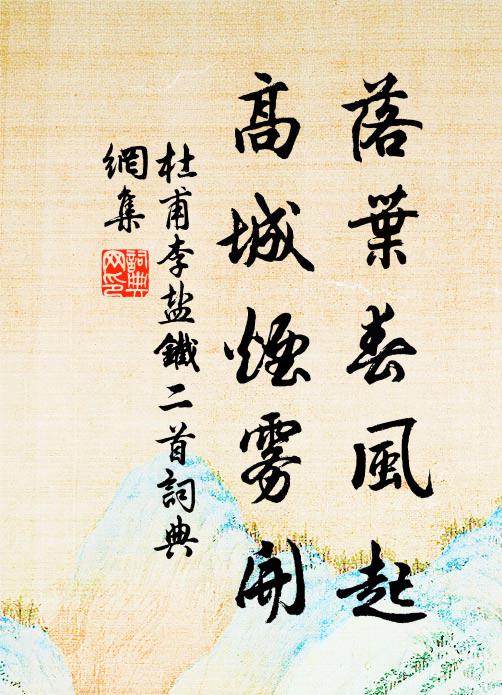 落葉春風起
高城煙霧開
杜甫李盐鐵二首詞典
網集
詞典
网印